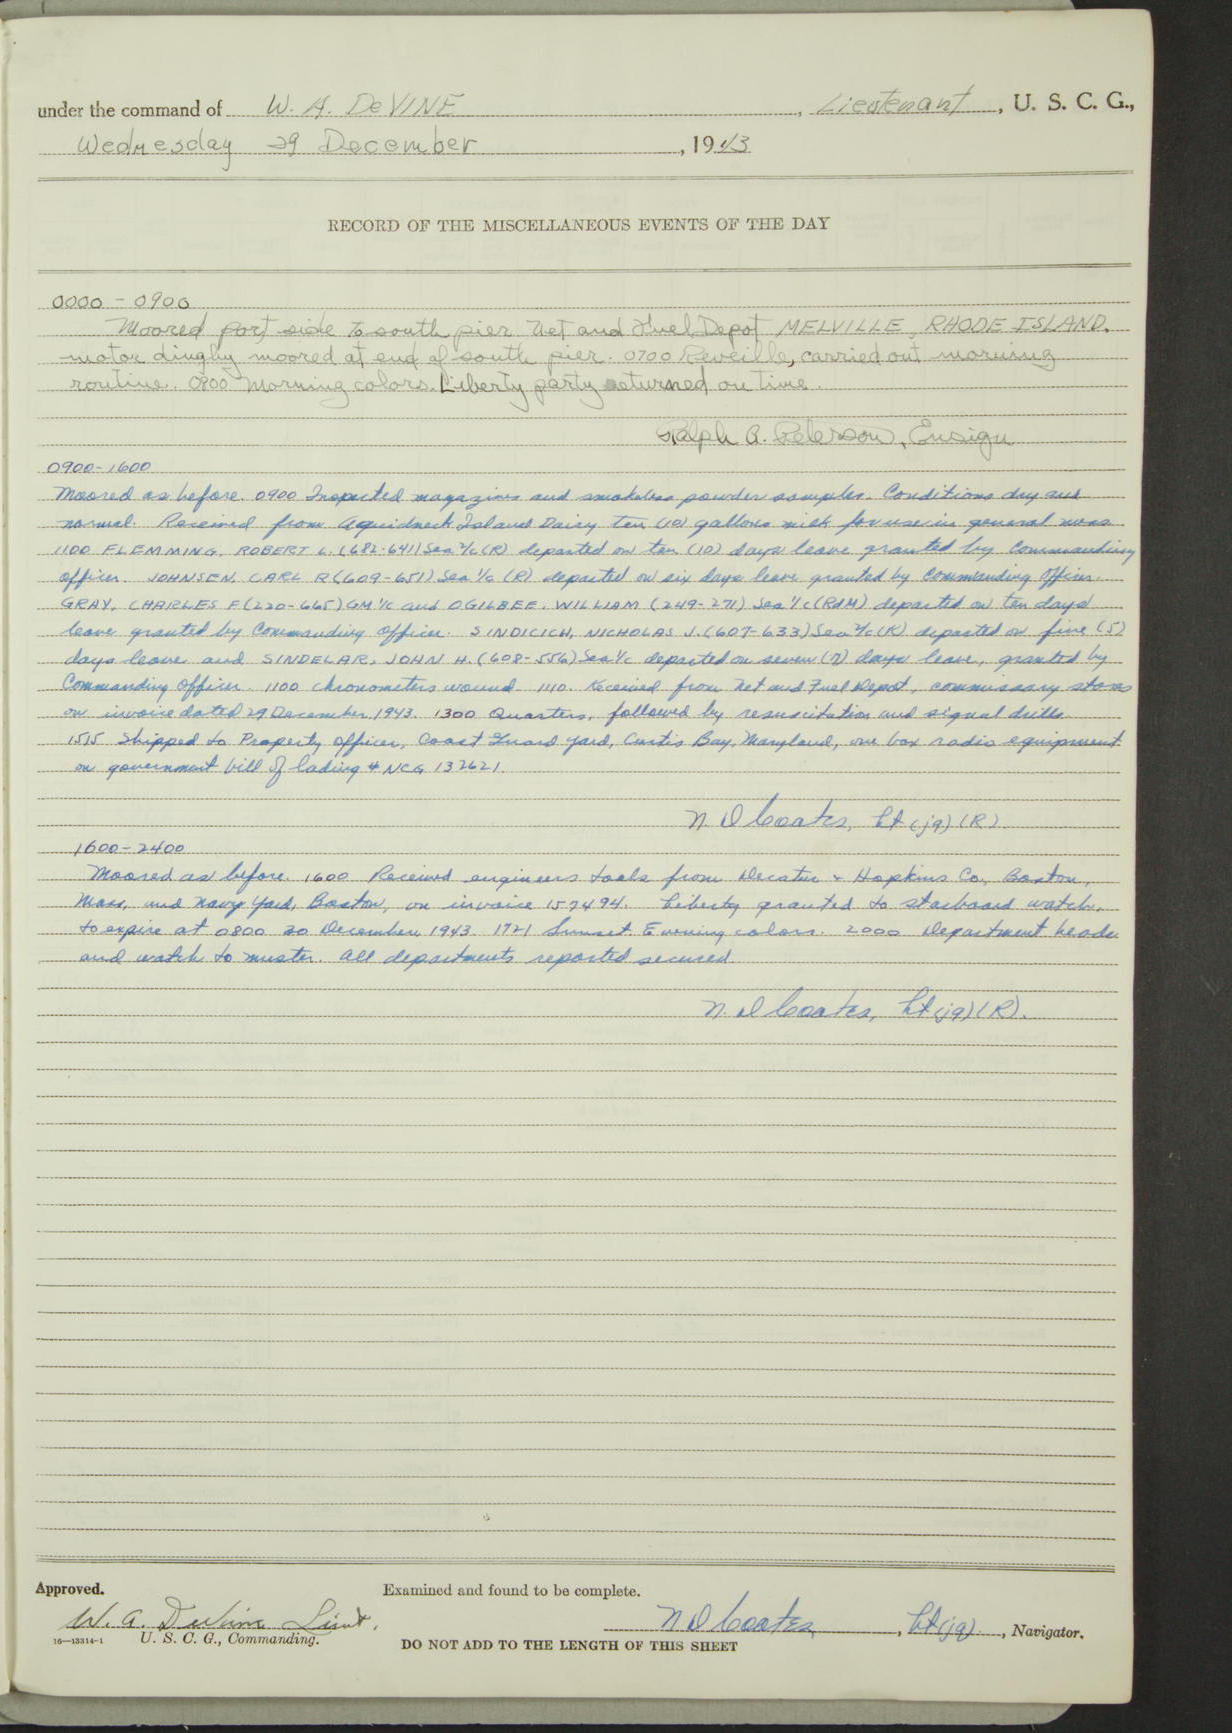 under the command of W. A. DeVINE, Lieutenant, U. S. C. G.,
Wednesday 29 December, 1943
RECORD OF THE MISCELLANEOUS EVENTS OF THE DAY
0000 - 0900
Moored port side to south pier Net and Fuel Depot MELVILLE, RHODE ISLAND.
motor dinghy moored at end of south pier. 0700 Reveille, carried out morning
routine. 0800 Morning colors. Liberty party returned on time.
Ralph A. Peterson, Ensign
0900-1600
Moored as before. 0900 Inspected magazines and smokeless powder samples. Conditions dry and
normal. Received from Aquidneck Island Dairy ten (10) gallons milk for use in general mess
1100 FLEMMING, ROBERT L. (682-641) Sea 2/c (R) departed on ten (10) days leave granted by Commanding
officer. JOHNSEN, CARL R (609-651) Sea 1/c (R) departed on six days leave granted by Commanding Officer.
GRAY, CHARLES F (220-665) GM 1/c and OGILBEE, WILLIAM (249-271) Sea 1/c (RdM) departed on ten days
leave granted by Commanding Officer. SINDICICH, NICHOLAS J. (607-633) Sea 2/c (R) departed on five (5)
days leave and SINDELAR, JOHN H. (608-556) Sea 1/c departed on seven (7) days leave, granted by
Commanding Officer. 1100 chronometers wound 1110. Received from Net and Fuel Depot, commissary stores
on invoice dated 29 December 1943. 1300 Quarters, followed by resuscitation and signal drills.
1515 Shipped to Property Officer, Coast Guard Yard, Curtis Bay, Maryland, one box radio equipment
on government bill of lading # NCG 132621.
N. D Coates, Lt (jg) (R)
1600-2400
Moored as before. 1600 Received engineers tools from Decatur & Hopkins Co., Boston,
Mass, and Navy Yard, Boston, on invoice 157494. Liberty granted to starboard watch,
to expire at 0800 30 December, 1943. 1721 Sunset. Evening colors. 2000 Department heads
and watch to muster. All departments reported secured.
N. D Coates, Lt (jg) (R).
Approved.
Examined and found to be complete.
W. A. DeVine Lieut.
N D Coates, Lt (jg), Navigator.
16—13314-1 U. S. C. G., Commanding.
DO NOT ADD TO THE LENGTH OF THIS SHEET